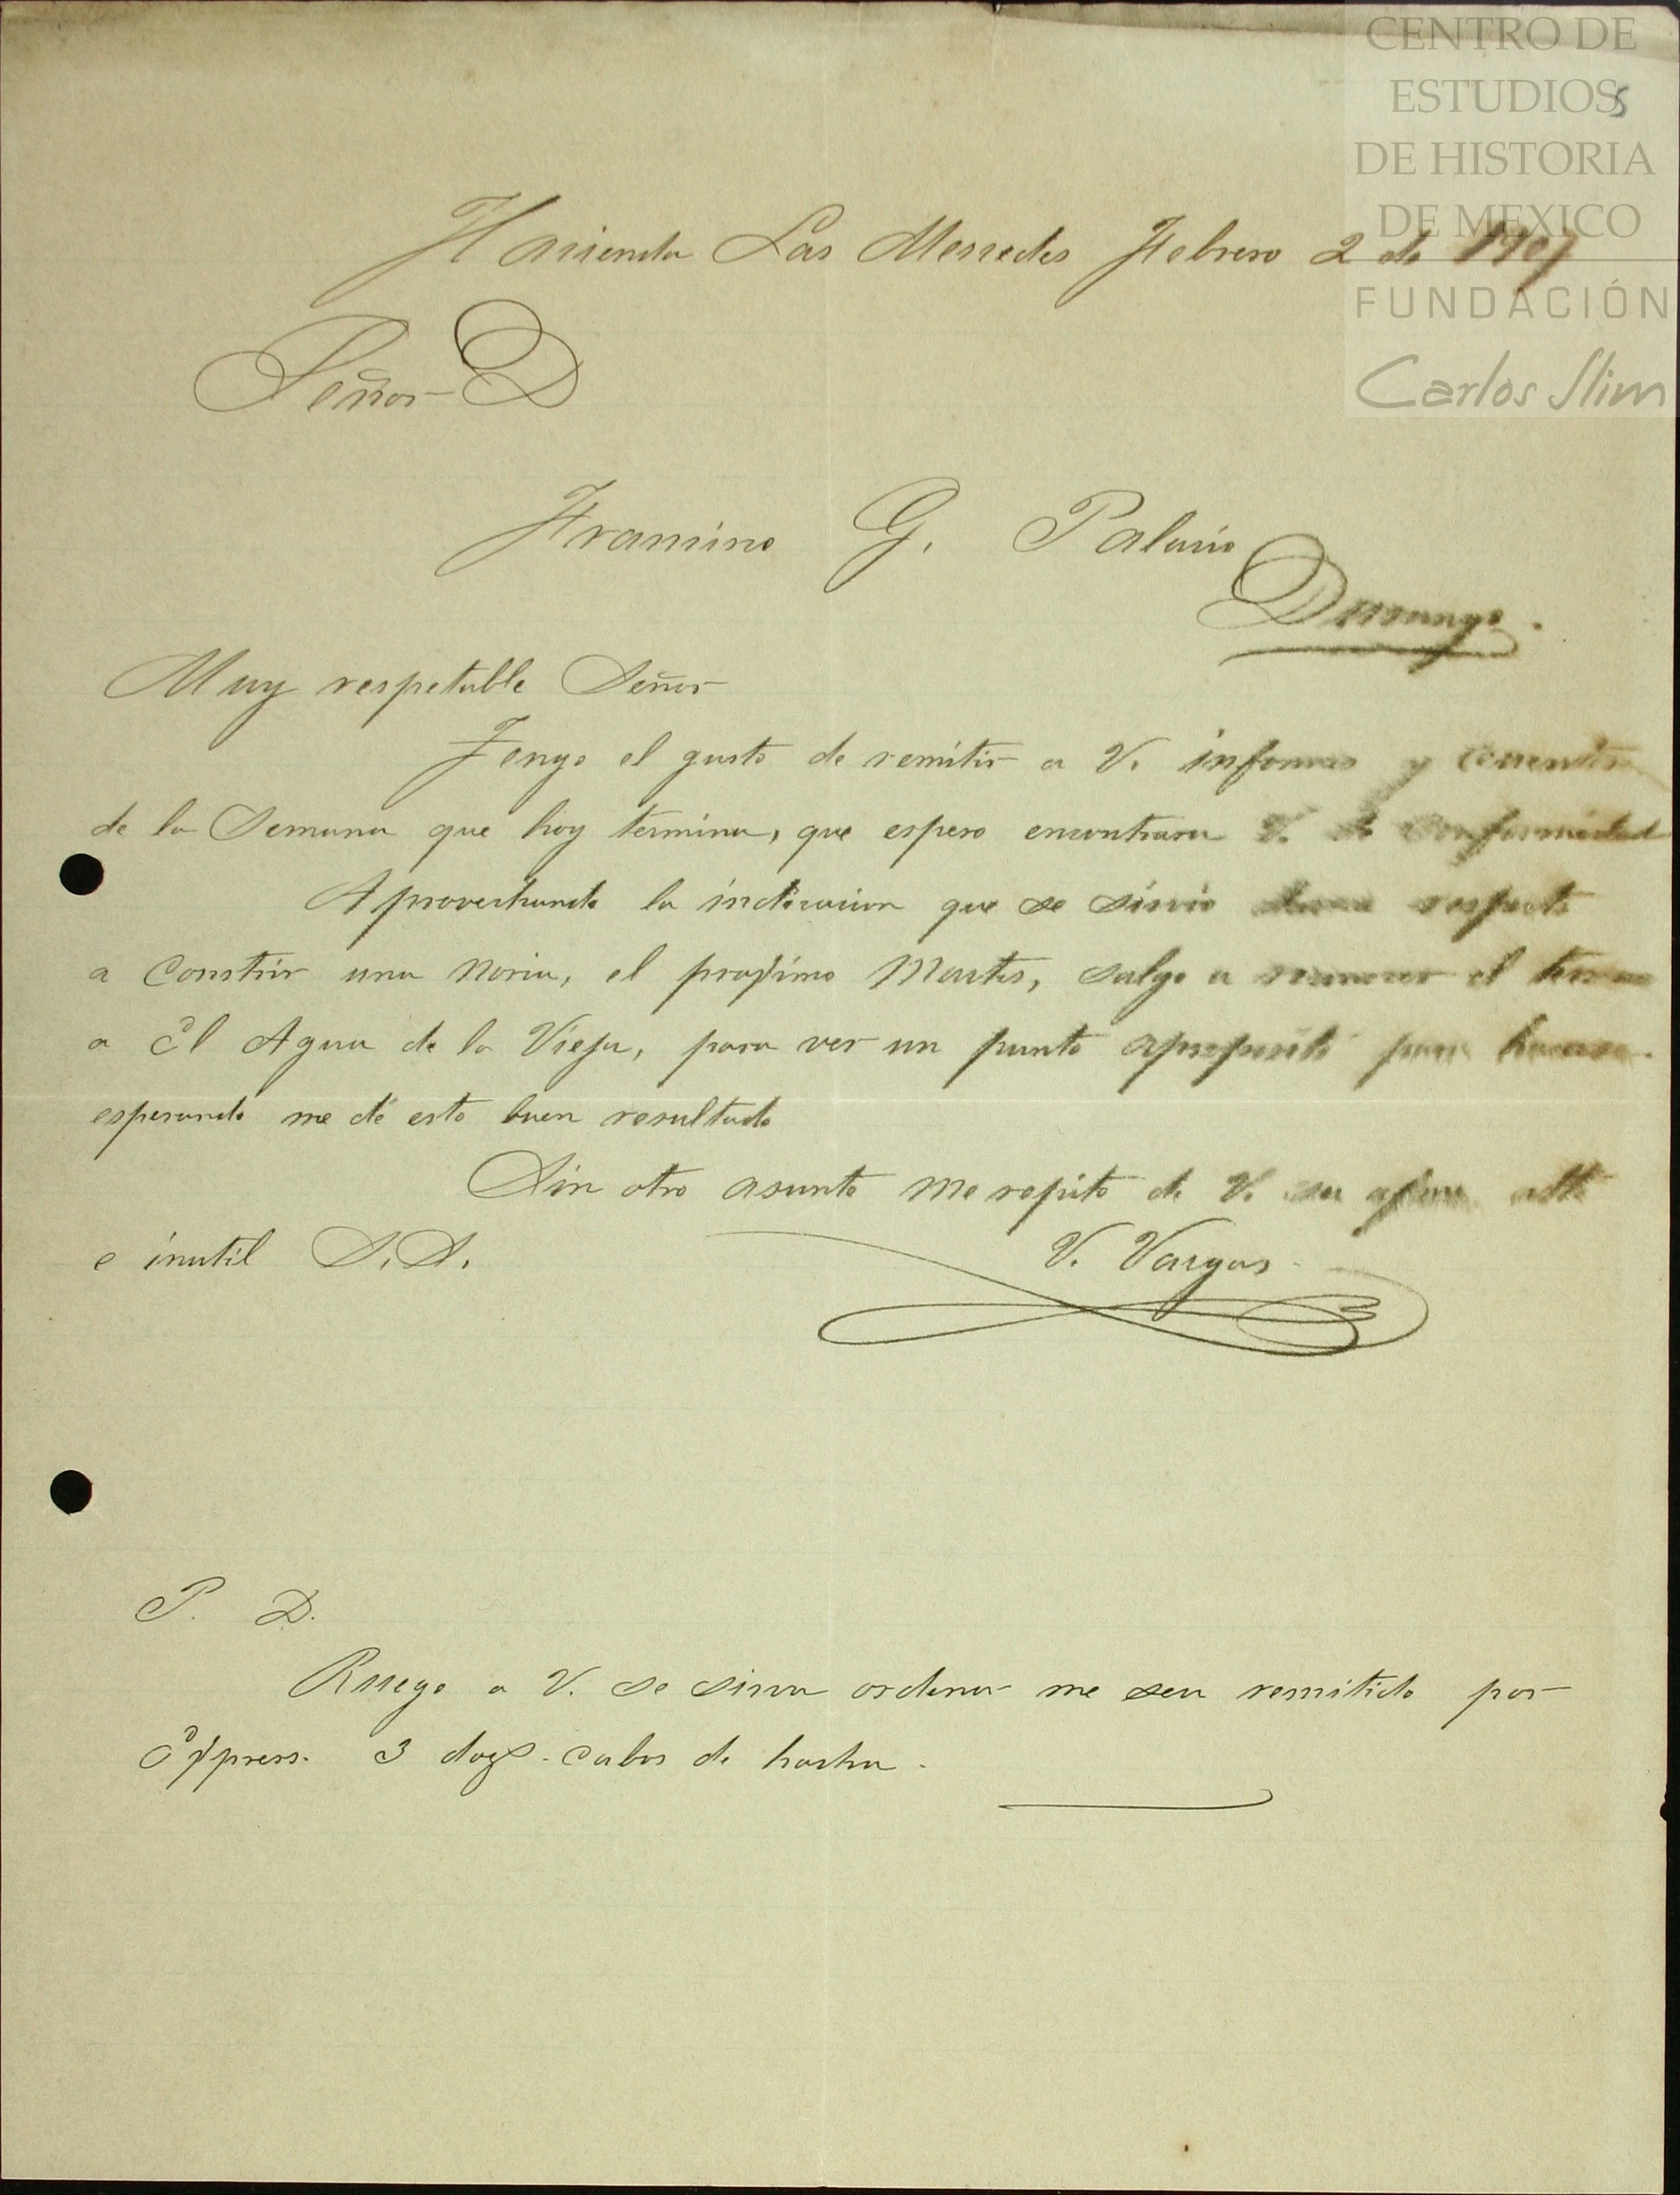 CENTRO DE
ESTUDIOS
DE HISTORIA
DE MEXICO
FUNDACIÓN
Carlos Slim
5
Hacienda Las Mercedes Febrero 2 de 1907
Señor D
Francisco G. Palacio
Durango.
Muy respetable Señor
Tengo el gusto de remitir a V. informes y cuentas
de la Semana que hoy termina, que espero encontrara V. de conformidad
Aprovechando la indicacion que se sirvio darme respecto
a Construir una noria, el proximo Martes, salgo a reconocer el terreno
a El Agua de la Vieja, para ver un punto aproposito para hacerse.
esperando me dé esto buen resultado
Sin otro asunto me repito de V. su afmo. atto
e inutil S.S.
V. Vargas
P. D.
Ruego a V. se sirva ordenar me sea remitido por
Express. 3 dozs. cabos de hacha.